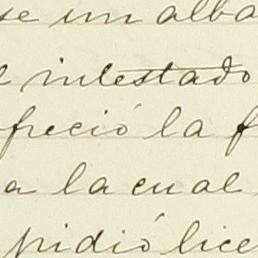 se un alba
l intestado
freció la f
a la cual
pidió lice